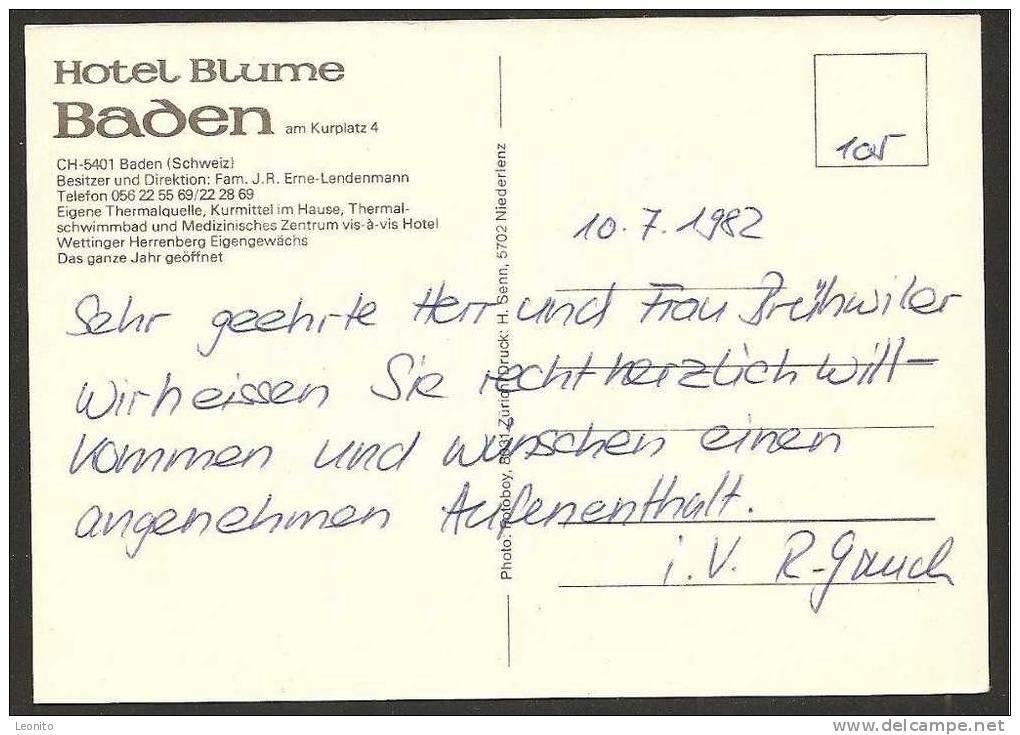 Hotel Blume
Baden am Kurplatz 4
CH-5401 Baden (Schweiz)
Besitzer und Direktion: Fam. J.R. Erne-Lendenmann
Telefon 056 22 55 69/22 28 69
Eigene Thermalquelle, Kurmittel im Hause, Thermal-
schwimmbad und Medizinisches Zentrum vis-à-vis Hotel
Wettinger Herrenberg Eigengewächs
Das ganze Jahr geöffnet
105
10.7.1982
Sehr geehrte Herr und Frau Brühwiler
Wir heissen Sie recht herzlich Will-
kommen und wünschen einen
angenehmen Aufenenthalt.
i.V. R. Gauch
Photo: Fotoboy, 8031 Zürich Druck: H. Senn, 5702 Niederlenz
Leonito
www.delcampe.net